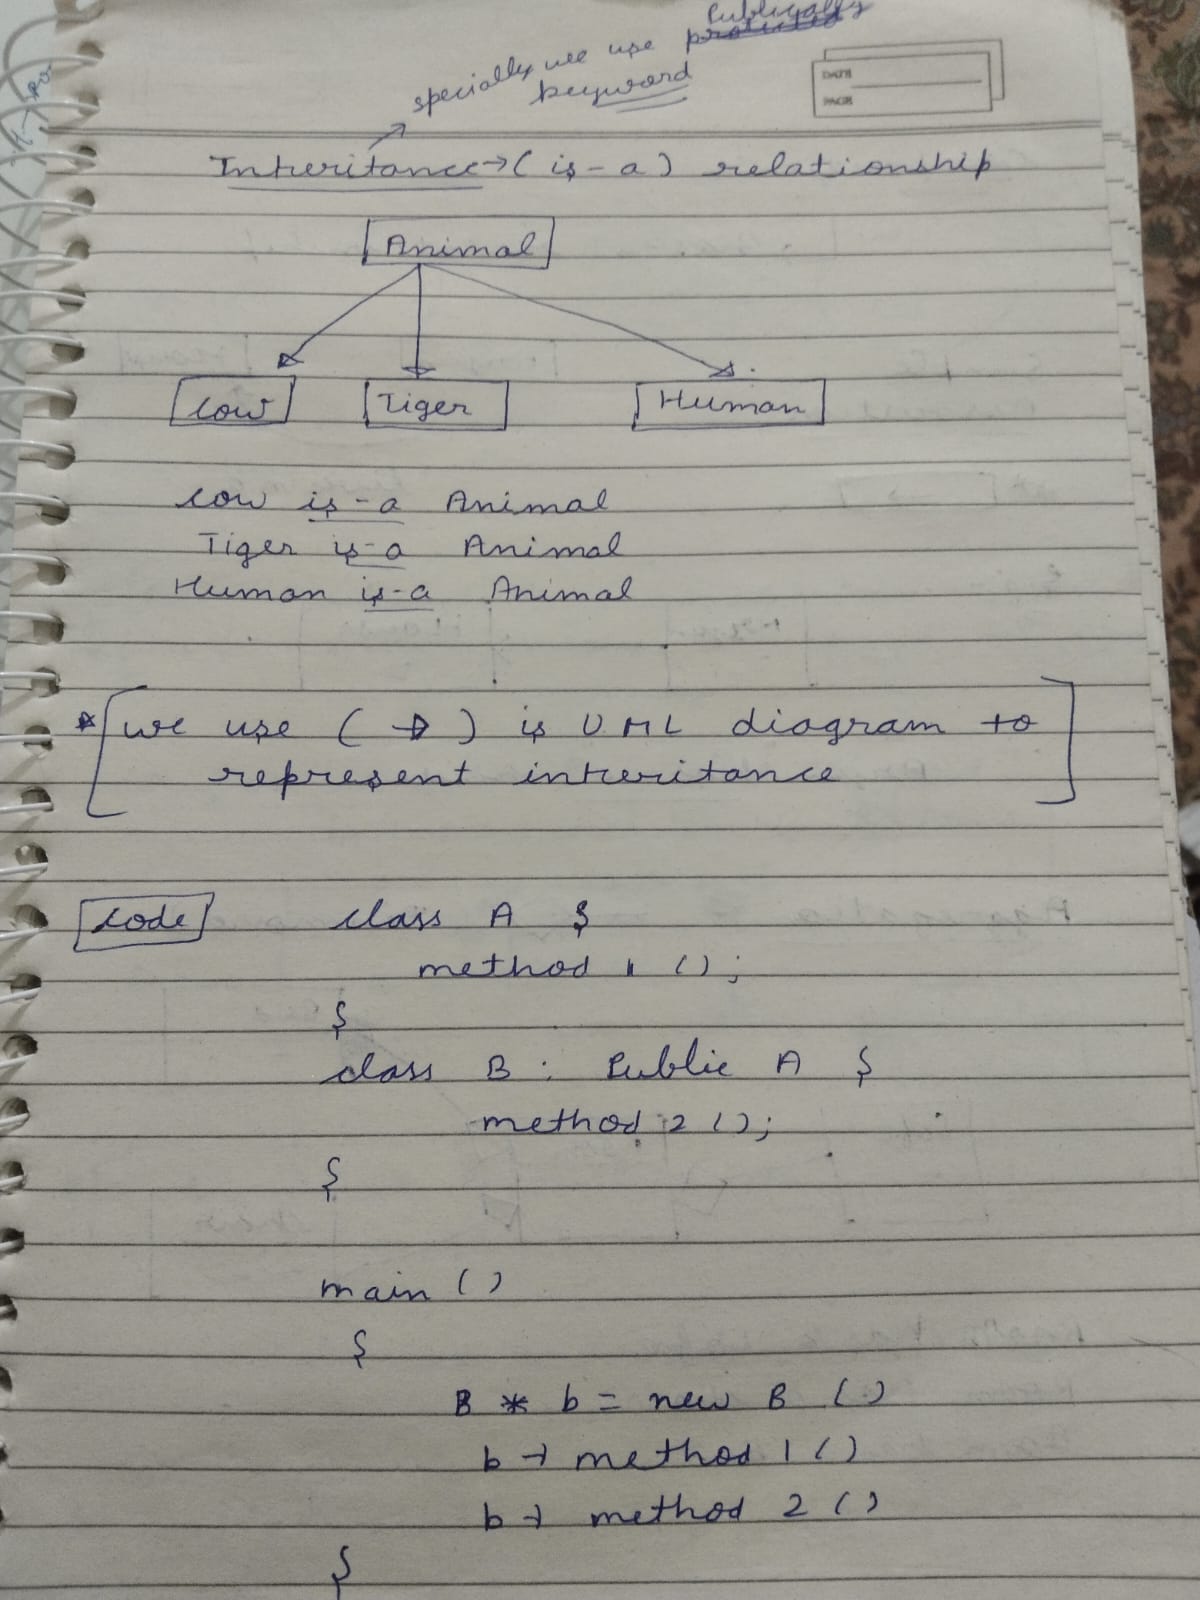 Publically
specially we use
keyword
DATE
PAGE
Inheritance→(is-a) relationship
Animal
Cow Tiger Human
Cow is-a Animal
Tiger is-a Animal
Human is-a Animal
* [we use ( → ) is UML diagram to
represent inheritance]
Code class A {
method 1 ();
}
class B : Public A {
method 2 ();
}
main ()
{
B * b = new B ()
b → method 1 ()
b → method 2 ()
}